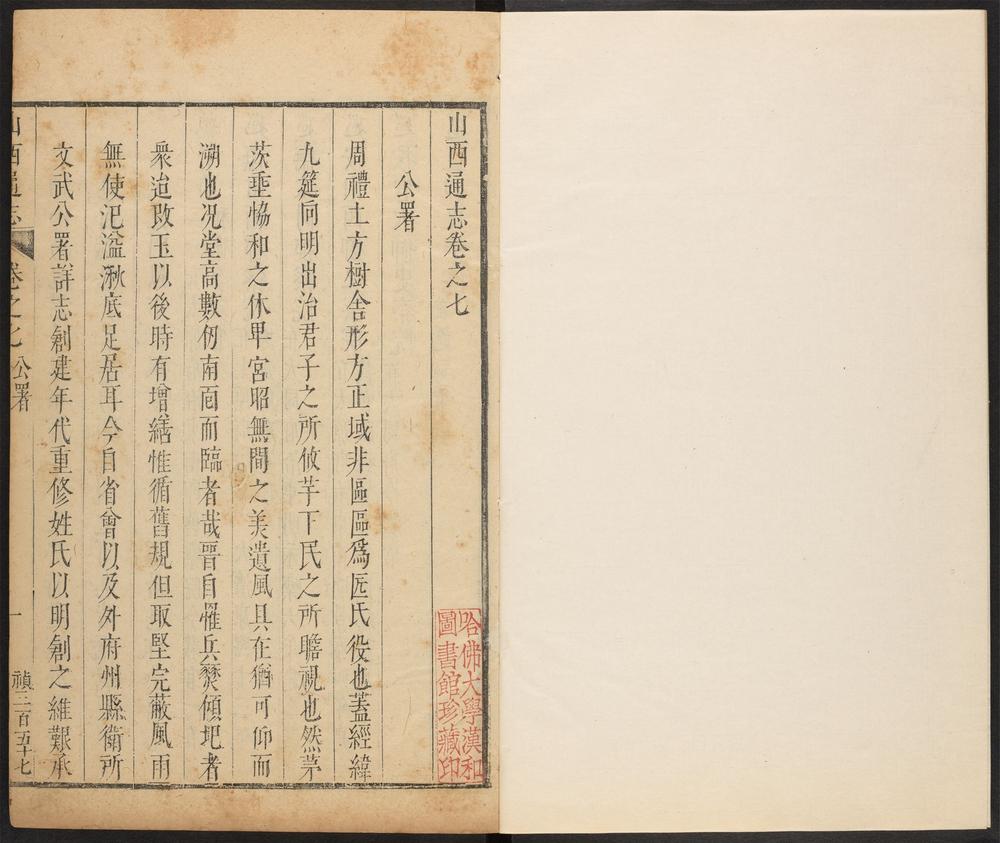 山西通志卷之七
公署
周禮土方樹舍形方正域非區區爲匠氏役也蓋經緯
九筵向明出治君子之所攸芋下民之所瞻視也然茅
茨垂恊和之休卑宮昭無間之美遺風具在猶可仰而
溯也况堂高數仞南面而臨者哉晋自罹兵燹傾圯者
衆迨改玉以後時有增繕惟循舊規但取堅完蔽風雨
無使汜溢湫底足居耳今自省會以及外府州縣衛所
文武公署詳志創建年代重修姓氏以明創之維艱承
山西通志 卷之七 公署 一 禎三百五十七
哈佛大學漢和
圖書館珍藏印